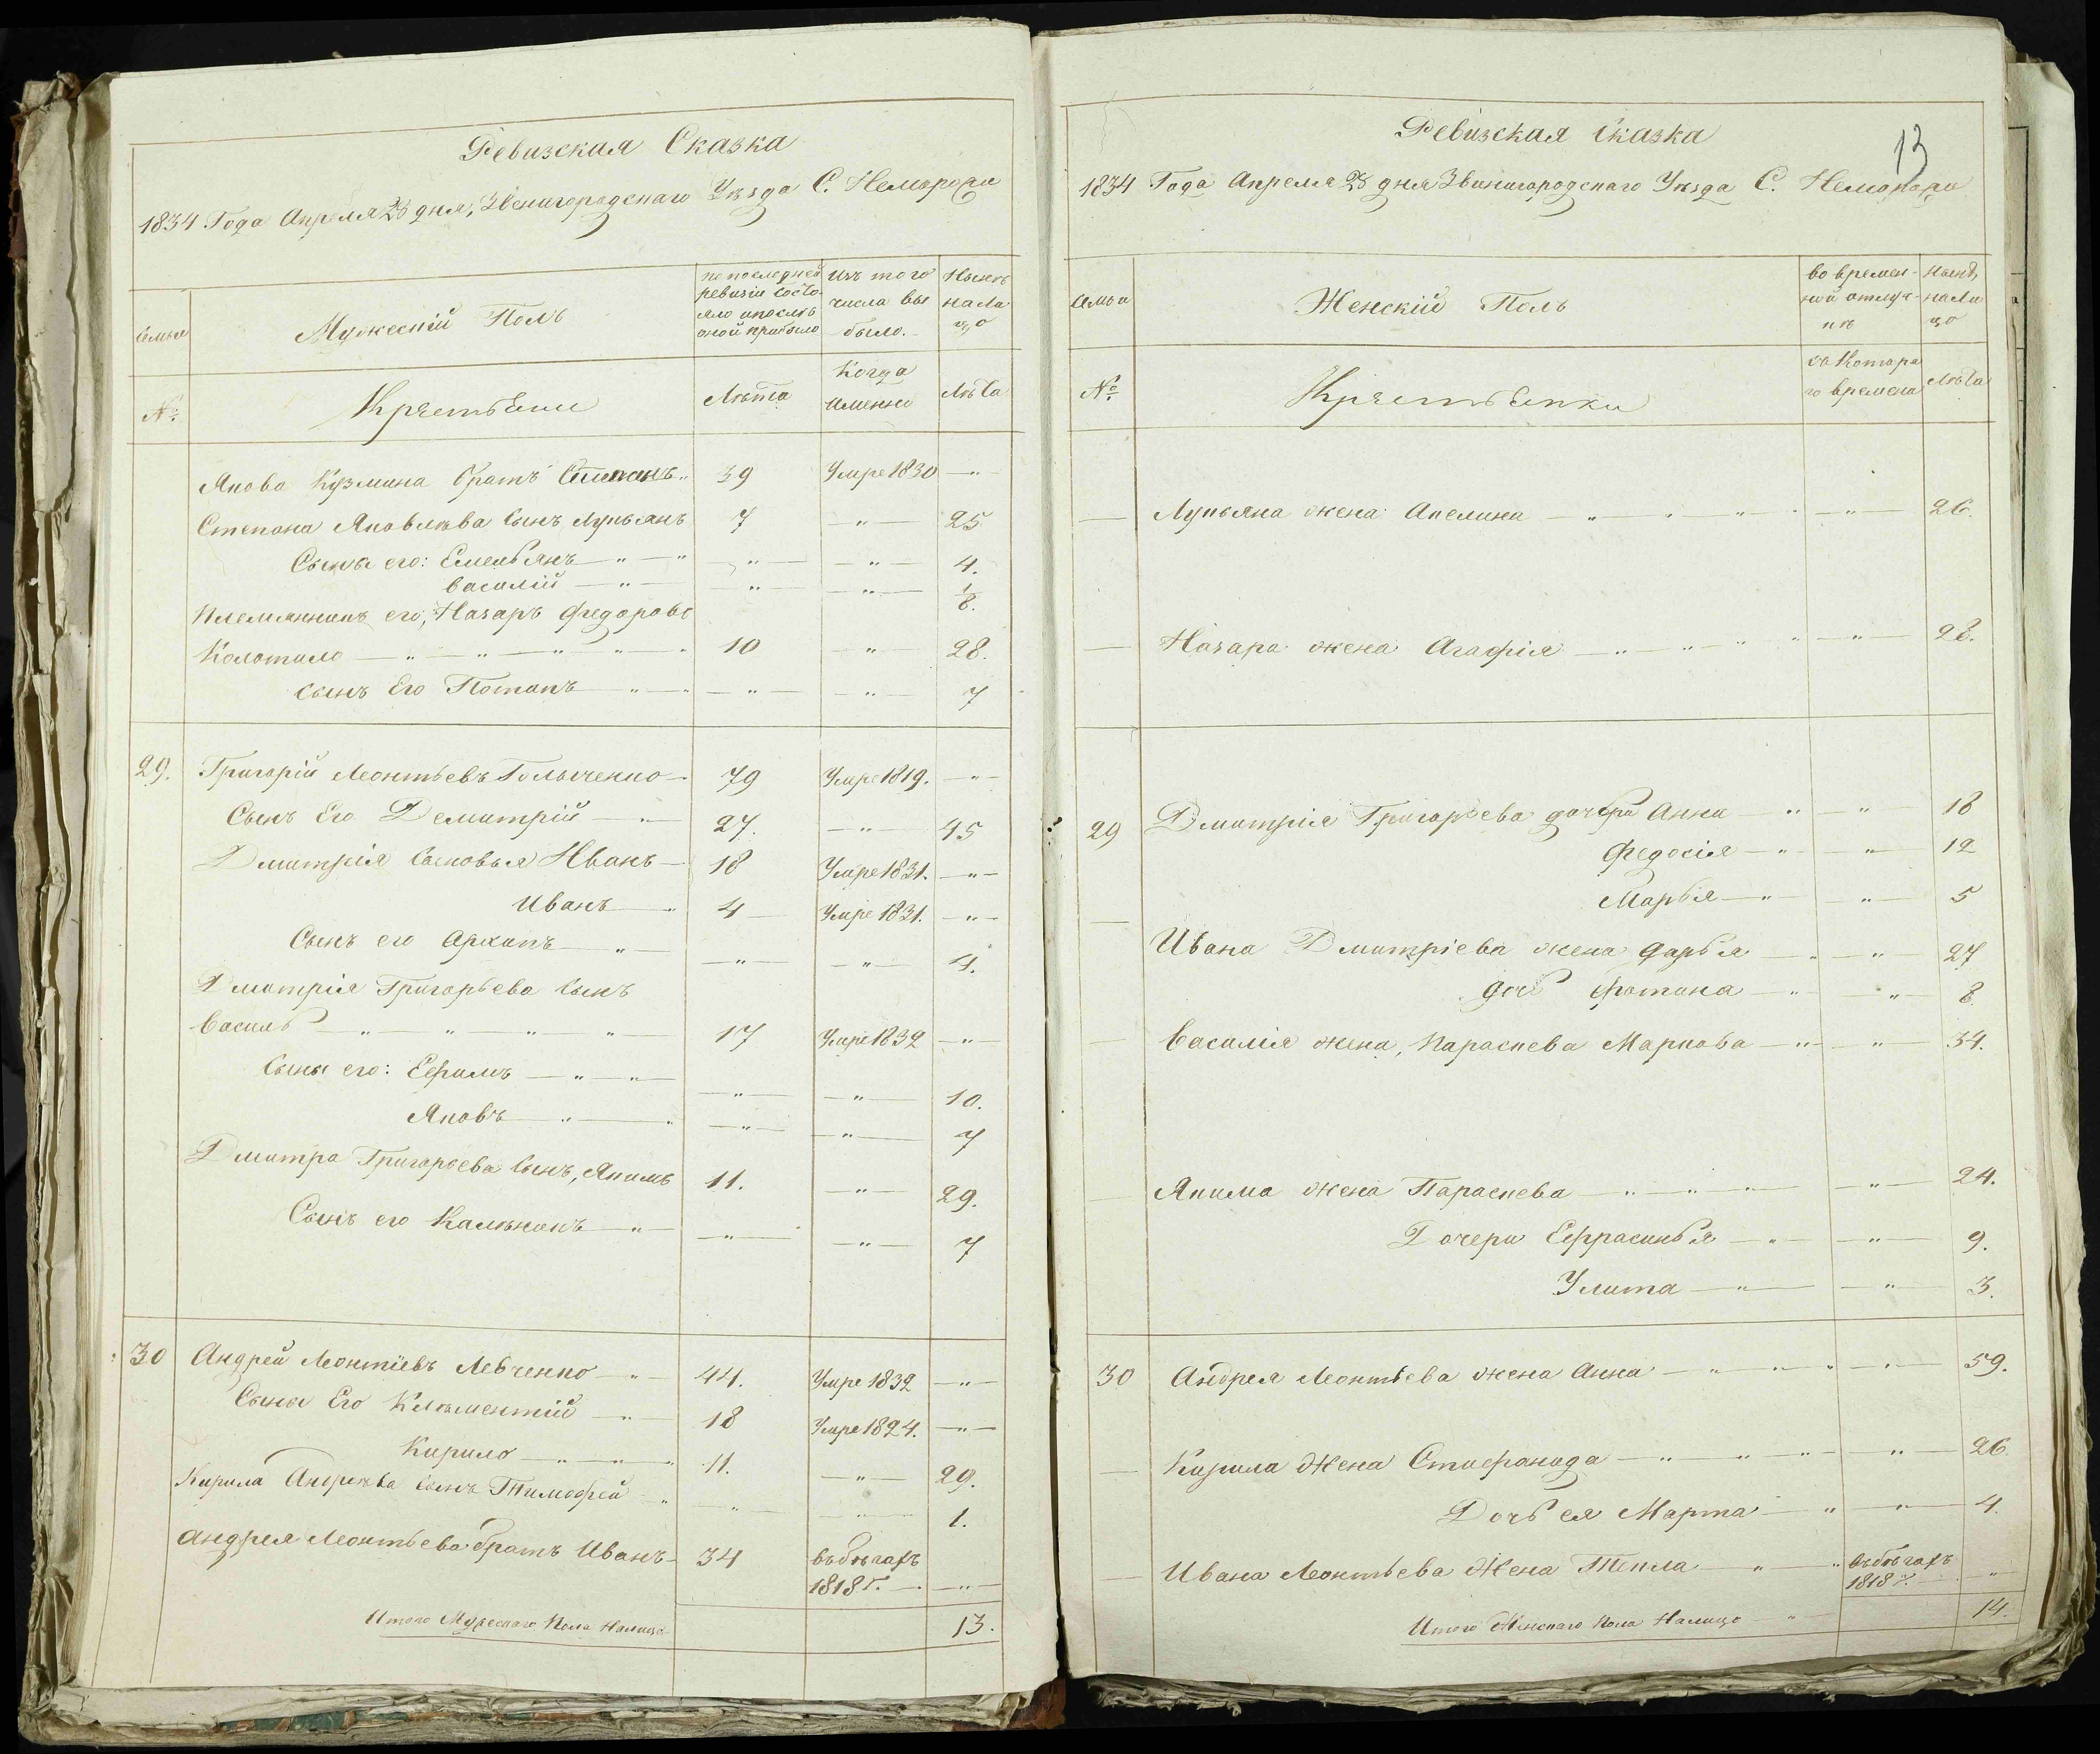 Ревизская Сказка
1834 Года Апреля 28 дня, Звенигородскаго Уѣзда С. Неморожи
Семьи
Мужеский Полъ
по последней ревизіи состояло и послѣ оной прибыло
Изъ того числа выбыло.
Нынѣ на лицо
№.
Крестьяне
Лѣта
Когда Именно
Лѣта
Якова Кузмина братъ Степанъ 39 Умре 1830 —"—
Степана Яковлева Сынъ Лукьянъ 7 —"— 25
Сыны его: Емельянъ —"— —"— —"— 4.
Василий —"— —"— —"— 1/8.
Племянникъ его, Назаръ Федоровъ
Колотило —"— 10 —"— 28.
Сынъ Его Потапъ —"— —"— —"— 7
29. Григорій Леонтьевъ Голыченко 79 Умре 1819. —"—
Сынъ Его Демитрій —"— 27. —"— 45
Дмитрія Сыновья Иванъ — 18 Умре 1831. —"—
Иванъ —"— 4 Умре 1831. —"—
Сынъ его Архипъ —"— —"— —"— 4.
Дмитрія Григорьева Сынъ
Василь —"— 17 Умре 1832 —"—
Сыны его: Ефимъ —"— —"— —"— 10.
Яковъ —"— —"— —"— 7
Дмитра Григорьева Сынъ, Якимъ 11. —"— 29.
Сынъ его Калѣникъ —"— —"— —"— 7
30 Андрей Леонтіевъ Левченко —"— 44. Умре 1832 —"—
Сыны Его Климентій —"— 18 Умре 1824. —"—
Кирило —"— 11. —"— 29.
Кирила Андреева Сынъ Тимофей —"— —"— —"— 1.
Андрея Леонтьева братъ Иванъ — 34 въ бѣгахъ
1818 г. —"—
Итого Мужескаго Пола Налицо 13.
13
Ревизская Сказка
1834 Года Апреля 28 дня Звинигородскаго Уѣзда С. Неморожи
Семьи
Женскій Полъ
во временной отлучкѣ
Нынѣ на лицо
№.
Крестьянки
съ Котораго времени
Лѣта
— Лукьяна жена Акелина —"— —"— 26.
— Назара жена Агафія —"— —"— 28.
29 Дмитрія Григорьева дочери Анна —"— —"— 18
Федосія —"— —"— 12
Марья —"— —"— 5
— Ивана Дмитріева жена Дарья —"— —"— 27
Дочь Фотина —"— —"— 8
— Василія жена, Параскева Маркова —"— —"— 34.
— Якима жена Параскева —"— —"— 24.
Дочери Ефрасинья —"— —"— 9.
Улита —"— —"— 3.
30 Андрея Леонтьева жена Анна —"— —"— 59.
— Кирила Жена Стифанида —"— —"— 26
Дочь ея Марта —"— —"— 4.
— Ивана Леонтьева Жена Текла —"— въ бѣгахъ
1818 г. —"—
Итого Женскаго Пола Налицо —"— 14.